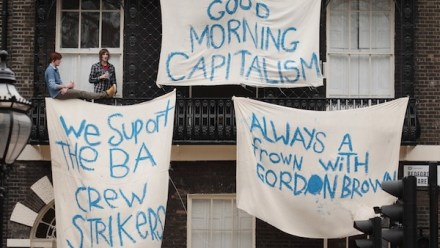 GOOD
MORNING
CAPITALISM
We SupORT
THE BA
CREW
STRIKERS
ALWAYS A
frown WiTH
GORDON BROWN